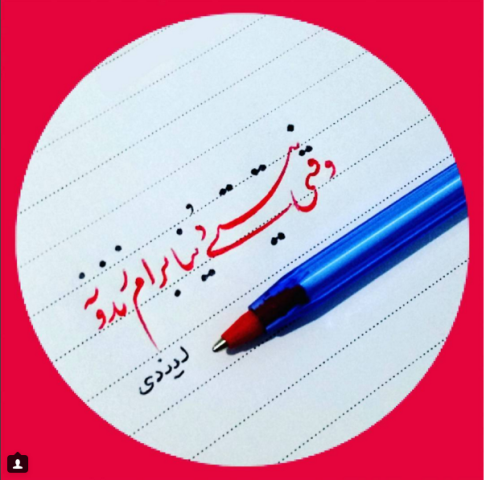 وقتی نیستی دنیا برام زندونه